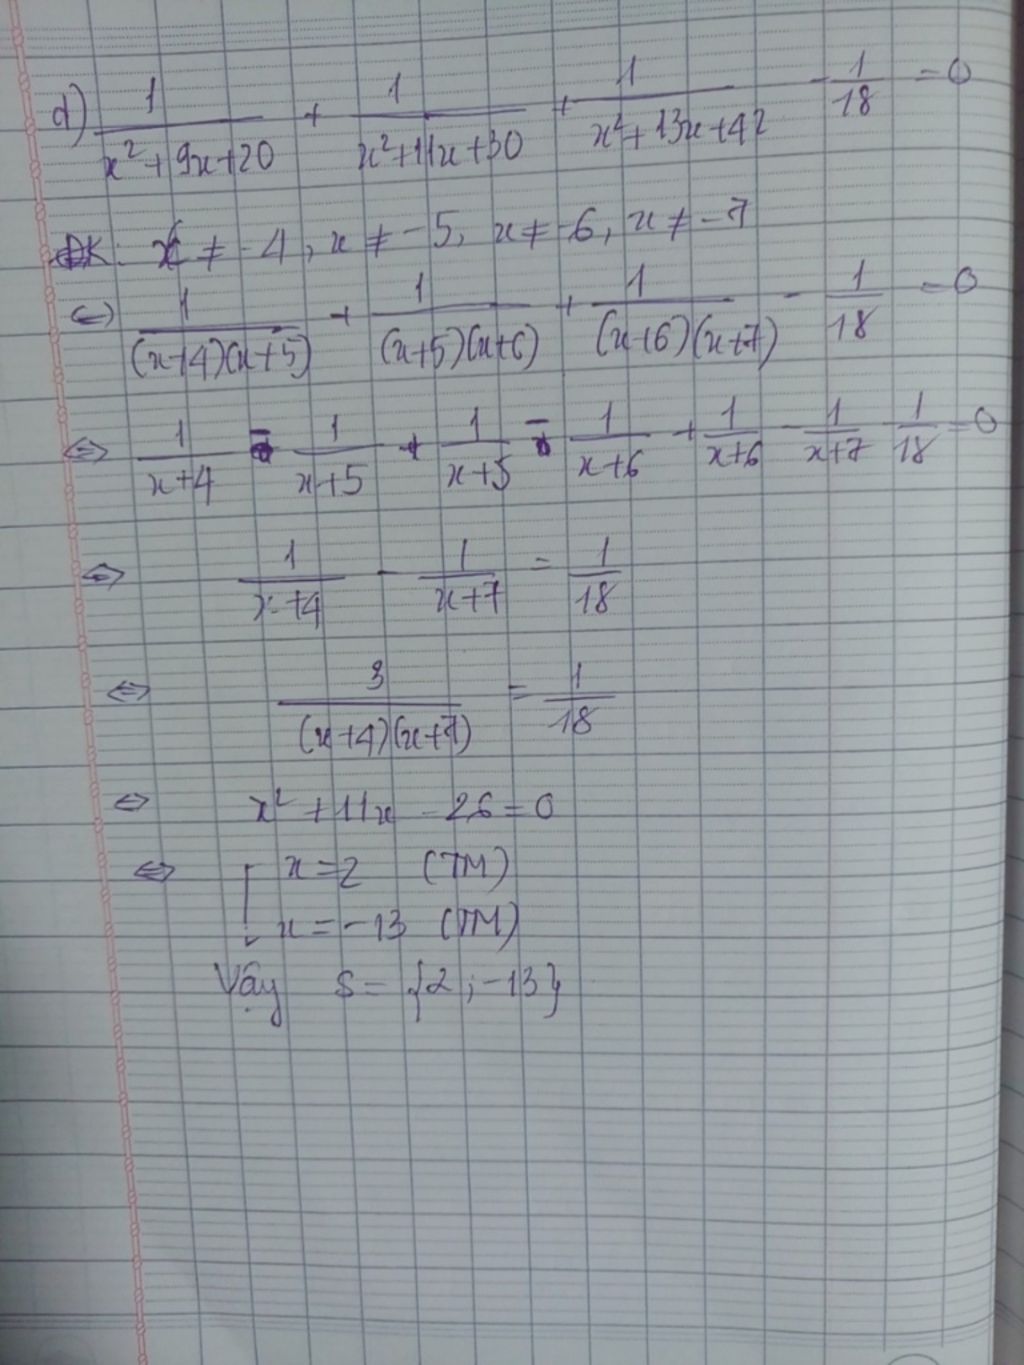 d) 1/(x²+9x+20) + 1/(x²+11x+30) + 1/(x²+13x+42) - 1/18 = 0
ĐK: x ≠ -4, x ≠ -5, x ≠ -6, x ≠ -7
<=> 1/((x+4)(x+5)) + 1/((x+5)(x+6)) + 1/((x+6)(x+7)) - 1/18 = 0
<=> 1/(x+4) - 1/(x+5) + 1/(x+5) - 1/(x+6) + 1/(x+6) - 1/(x+7) - 1/18 = 0
<=> 1/(x+4) - 1/(x+7) = 1/18
<=> 3/((x+4)(x+7)) = 1/18
<=> x² + 11x - 26 = 0
<=> [ x = 2 (TM)
x = -13 (TM)
Vậy S = {2; -13}